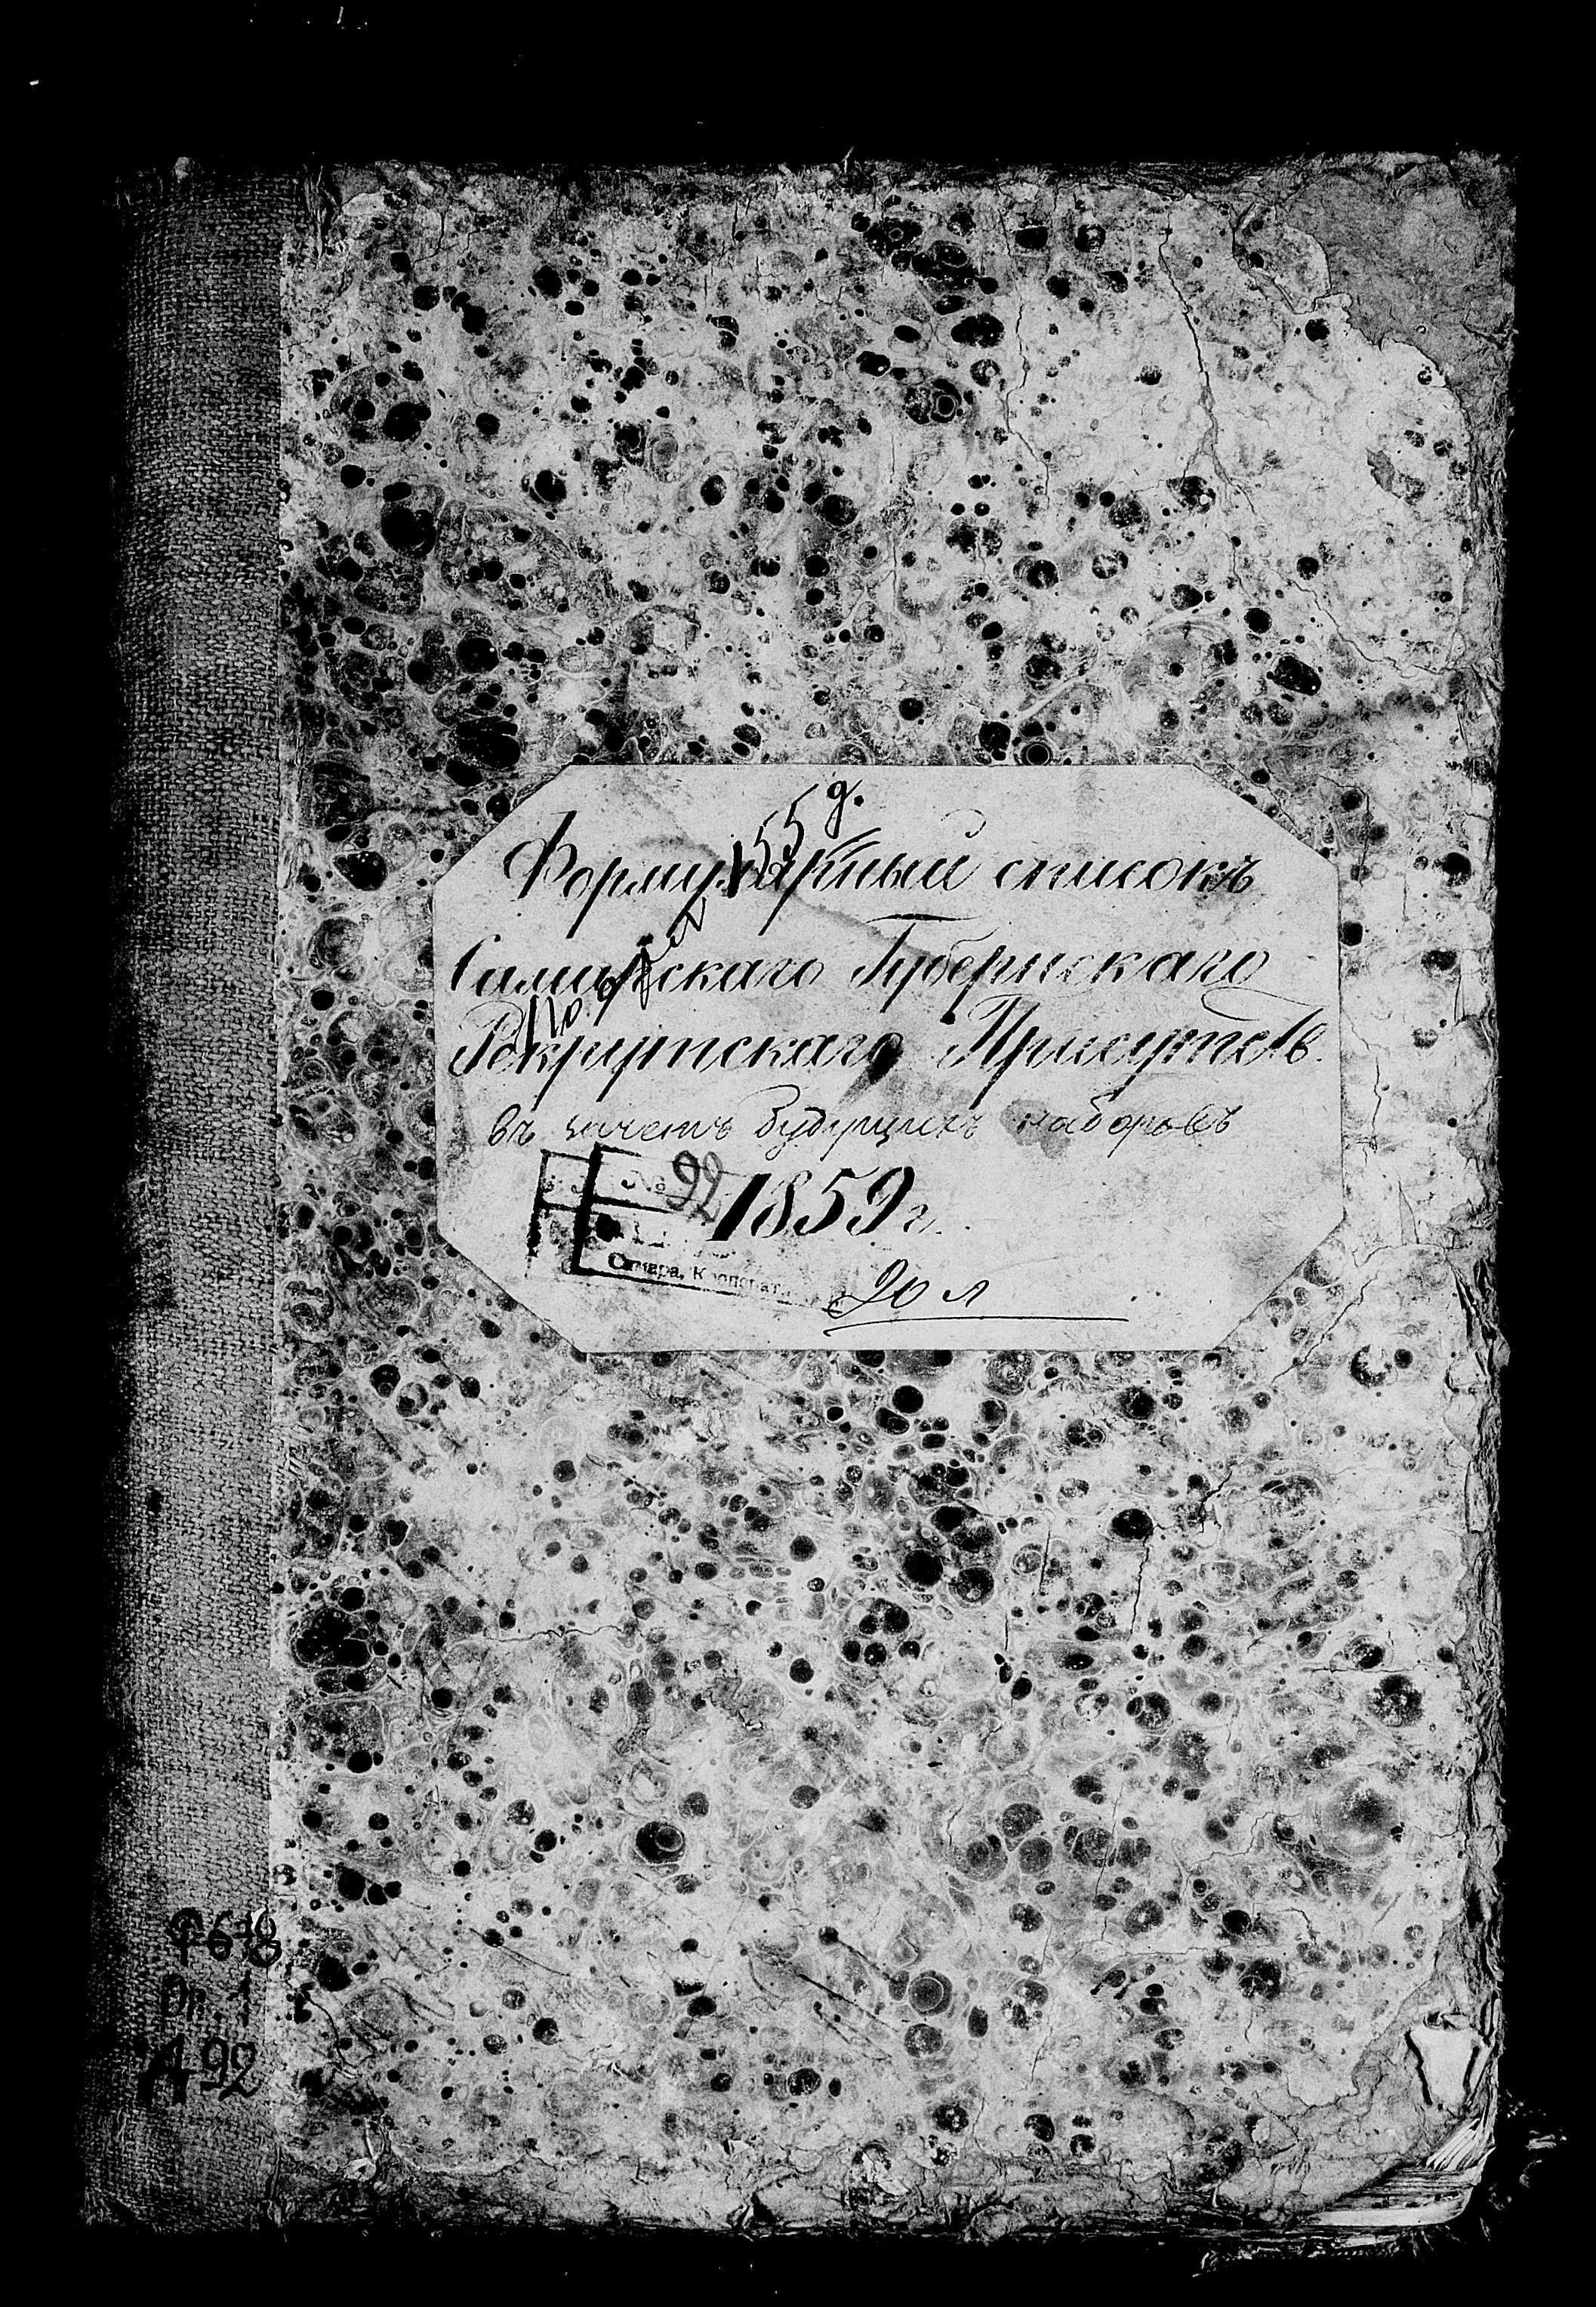 155 д.
Формулярный списокъ
Самарскаго Губернскаго
Рекрутскаго Присутств.
въ зачетъ будущихъ наборовъ
№ 92
1859 г.
Самара, Кооперат.
90 л
Ф 618
Оп. 1
Д 92